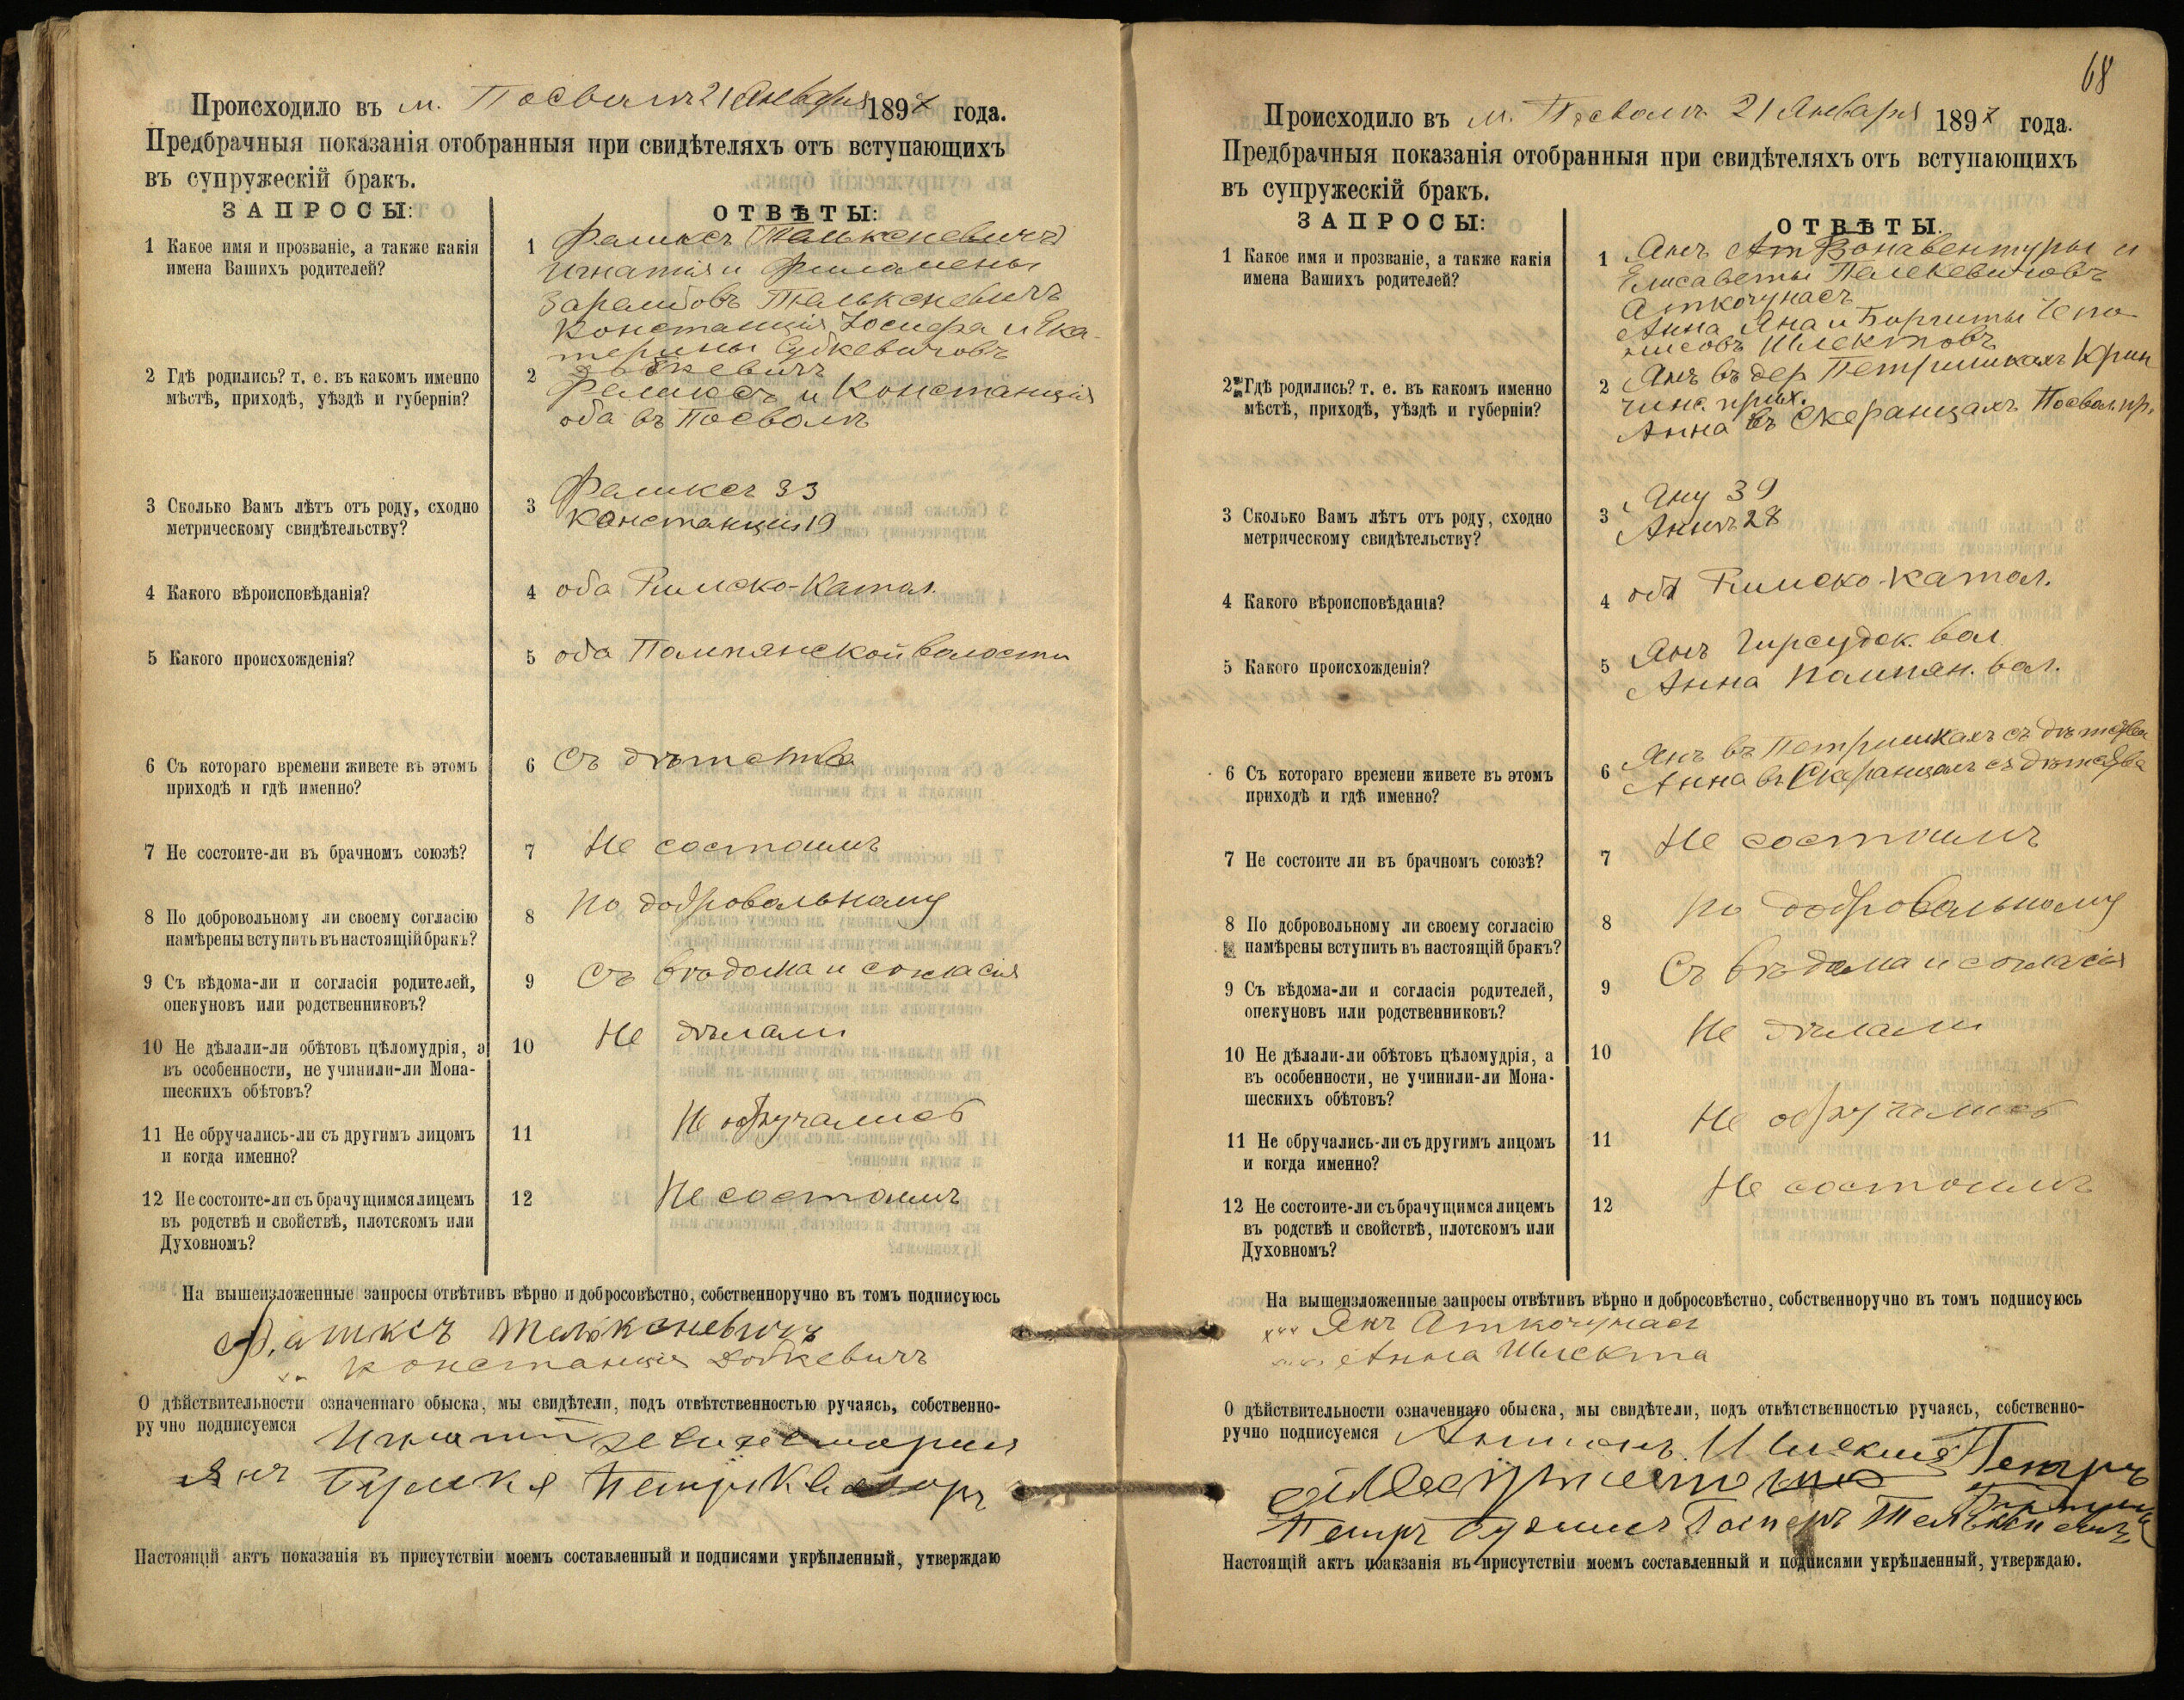 Происходило въ м. Посволѣ 21 Января 1897 года.
Предбрачныя показанія отобранныя при свидѣтеляхъ отъ вступающихъ
въ супружескій бракъ.
ЗАПРОСЫ:
ОТВѢТЫ:
1 Какое имя и прозваніе, а также какія
имена Вашихъ родителей?
1 Феликсъ
Игнатія и Филомены
Константція Іосифа и Ека-
терины
2 Гдѣ родились? т. е. въ какомъ именно
мѣстѣ, приходѣ, уѣздѣ и губерніи?
2 Феликсъ и Константція
оба въ Посволѣ
3 Сколько Вамъ лѣтъ отъ роду, сходно
метрическому свидѣтельству?
3 Феликсъ 33
Константція 19
4 Какого вѣроисповѣданія?
4 оба Римско-Катол.
5 Какого происхожденія?
5 оба Помпянской волости
6 Съ котораго времени живете въ этомъ
приходѣ и гдѣ именно?
6 Съ дѣтства
7 Не состоите-ли въ брачномъ союзѣ?
7 Не состоимъ
8 По добровольному ли своему согласію
намѣрены вступить въ настоящій бракъ?
8 По добровольному
9 Съ вѣдома-ли и согласія родителей,
опекуновъ или родственниковъ?
9 Съ вѣдома и согласія
10 Не дѣлали-ли обѣтовъ цѣломудрія, а
въ особенности, не учинили-ли Мона-
шескихъ обѣтовъ?
10 Не дѣлали
11 Не обручались-ли съ другимъ лицомъ
и когда именно?
11 Не обручались
12 Не состоите-ли съ брачущимся лицемъ
въ родствѣ и свойствѣ, плотскомъ или
Духовномъ?
12 Не состоимъ
На вышеизложенные запросы отвѣтивъ вѣрно и добросовѣстно, собственноручно въ томъ подписуюсь
Константція
О дѣйствительности означеннаго обыска, мы свидѣтели, подъ отвѣтственностью ручаясь, собственно-
ручно подписуемся
Янъ
Настоящій актъ показанія въ присутствіи моемъ составленный и подписями укрѣпленный, утверждаю
68
Происходило въ м. Посволѣ 21 Января 1897 года.
Предбрачныя показанія отобранныя при свидѣтеляхъ отъ вступающихъ
въ супружескій бракъ.
ЗАПРОСЫ:
ОТВѢТЫ.
1 Какое имя и прозваніе, а также какія
имена Вашихъ родителей?
1 Янъ Бонавентуры и
Елисаветы
Аткочунасъ
Анна Яна и
Шлектовъ
2 Гдѣ родились? т. е. въ какомъ именно
мѣстѣ, приходѣ, уѣздѣ и губерніи?
2 Янъ въ дер Петришкахъ Крин
чинс. прих.
Анна въ Скеранцахъ Посвол. пр.
3 Сколько Вамъ лѣтъ отъ роду, сходно
метрическому свидѣтельству?
3 Яну 39
Аннѣ 28
4 Какого вѣроисповѣданія?
4 оба Римско-катол.
5 Какого происхожденія?
5 Янъ Гирсудск. вол
Анна Помпян. вол.
6 Съ котораго времени живете въ этомъ
приходѣ и гдѣ именно?
6 Янъ въ Петришкахъ съ дѣтства
Анна въ Скеранцахъ съ дѣтства
7 Не состоите ли въ брачномъ союзѣ?
7 Не состоимъ
8 По добровольному ли своему согласію
намѣрены вступить въ настоящій бракъ?
8 По добровольному
9 Съ вѣдома-ли и согласія родителей,
опекуновъ или родственниковъ?
9 Съ вѣдома и согласія
10 Не дѣлали-ли обѣтовъ цѣломудрія, а
въ особенности, не учинили-ли Мона-
шескихъ обѣтовъ?
10 Не дѣлали
11 Не обручались-ли съ другимъ лицомъ
и когда именно?
11 Не обручались
12 Не состоите-ли съ брачущимся лицемъ
въ родствѣ и свойствѣ, плотскомъ или
Духовномъ?
12 Не состоимъ
На вышеизложенные запросы отвѣтивъ вѣрно и добросовѣстно, собственноручно въ томъ подписуюсь
xxx Янъ Аткочунасъ
xxx Анна Шлекта
О дѣйствительности означеннаго обыска, мы свидѣтели, подъ отвѣтственностью ручаясь, собственно-
ручно подписуемся Антонъ Петръ
Петръ
Настоящій актъ поаказанія въ присутствіи моемъ составленный и подписями укрѣпленный, утверждаю.